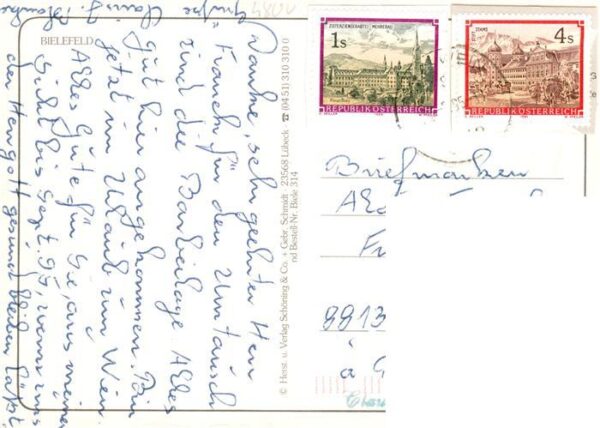 BIELEFELD
Danke, sehr geehrter Herr
für den Umtausch
und die Barbeilage. Alles
gut hier angekommen. Bin
jetzt im Urlaub in Wien.
Alles Gute für Sie, aus meiner
Sicht bis Sept. 95, wenn uns
der Herrgott gesund bleiben läßt.
Grüße
© Herst. u. Verlag Schöning & Co. + Gebr. Schmidt · 23568 Lübeck ☎ (0451) 310 310 0
nd Bestell-Nr. Biele 314
ZISTERZIENSERABTEI MEHRERAU
1s
REPUBLIK ÖSTERREICH
STIFT STAMS
4s
REPUBLIK ÖSTERREICH
Briefmarken